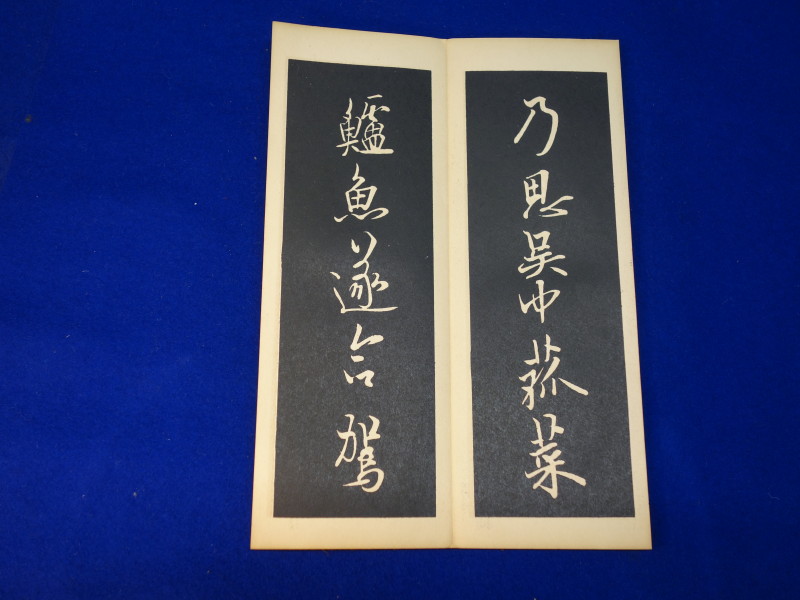 乃思吳中菰菜
鱸魚遂命駕